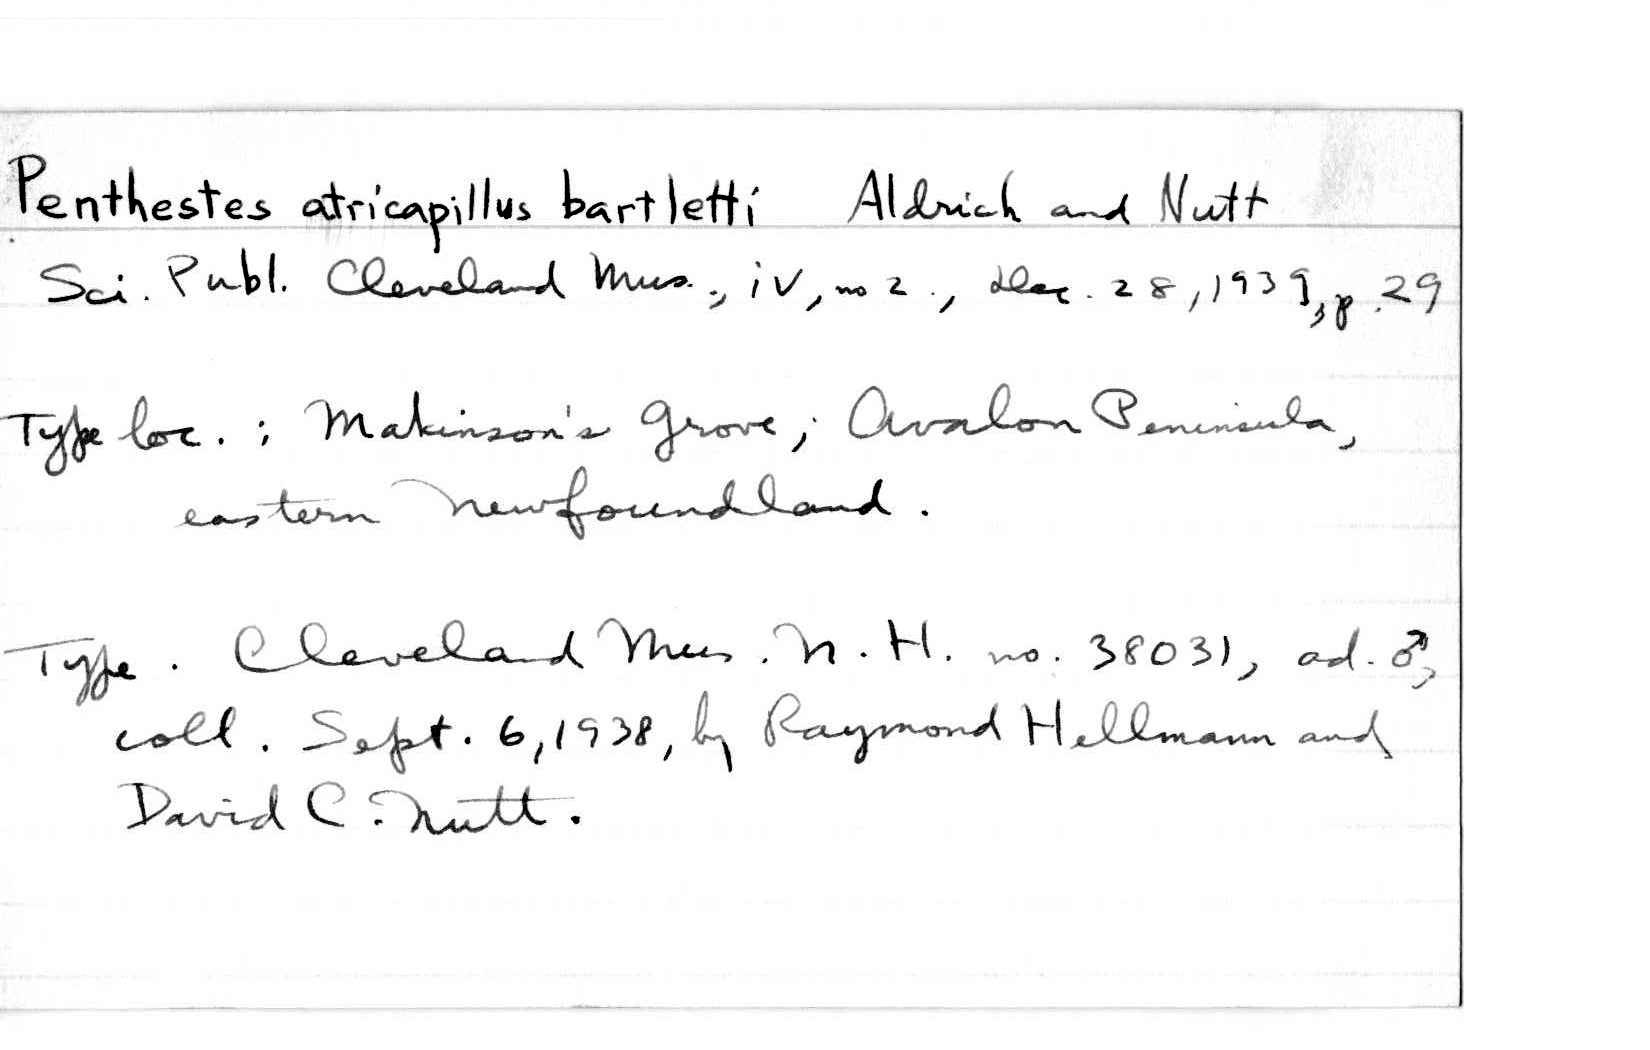 Penthestes atricapillus bartletti Aldrich and Nutt
Sci. Publ. Cleveland Mus., iv, no 2., Dec. 28, 1939, p. 29
Type loc.: Makinson's Grove, Avalon Peninsula,
eastern Newfoundland.
Type. Cleveland Mus. N. H. no. 38031, ad. ♂,
coll. Sept. 6, 1938, by Raymond Hellmann and
David C. Nutt.